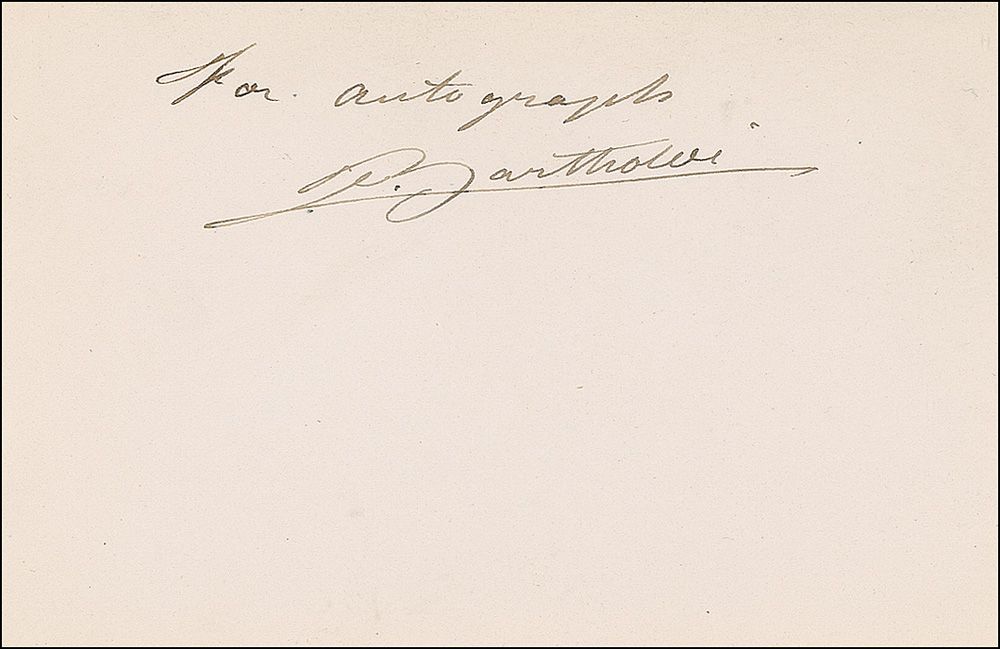 For autograph
Bartholdi